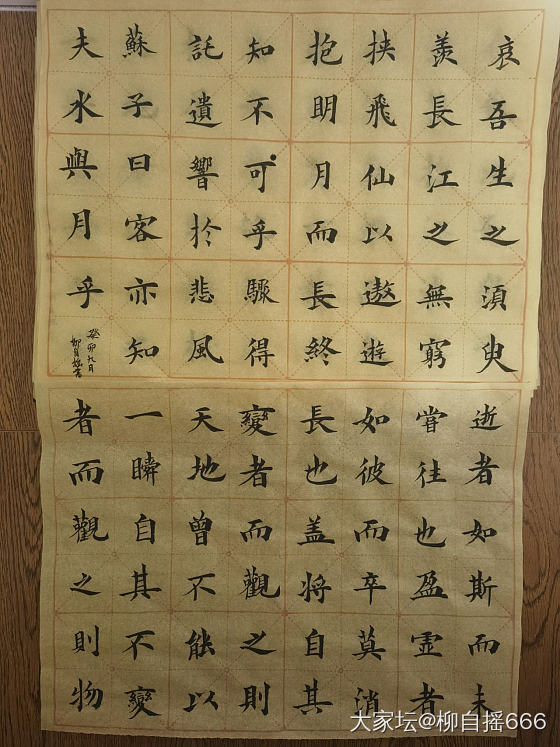 哀吾生之須臾
羨長江之無窮
挟飛仙以遨遊
抱明月而長終
知不可乎驟得
託遺響於悲風
蘇子曰客亦知
夫水與月乎
癸卯九月
柳自摇書
逝者如斯而未
嘗往也盈虛者
如彼而卒莫消
長也盖将自其
變者而觀之則
天地曾不能以
一瞬自其不變
者而觀之則物
大家坛@柳自摇666